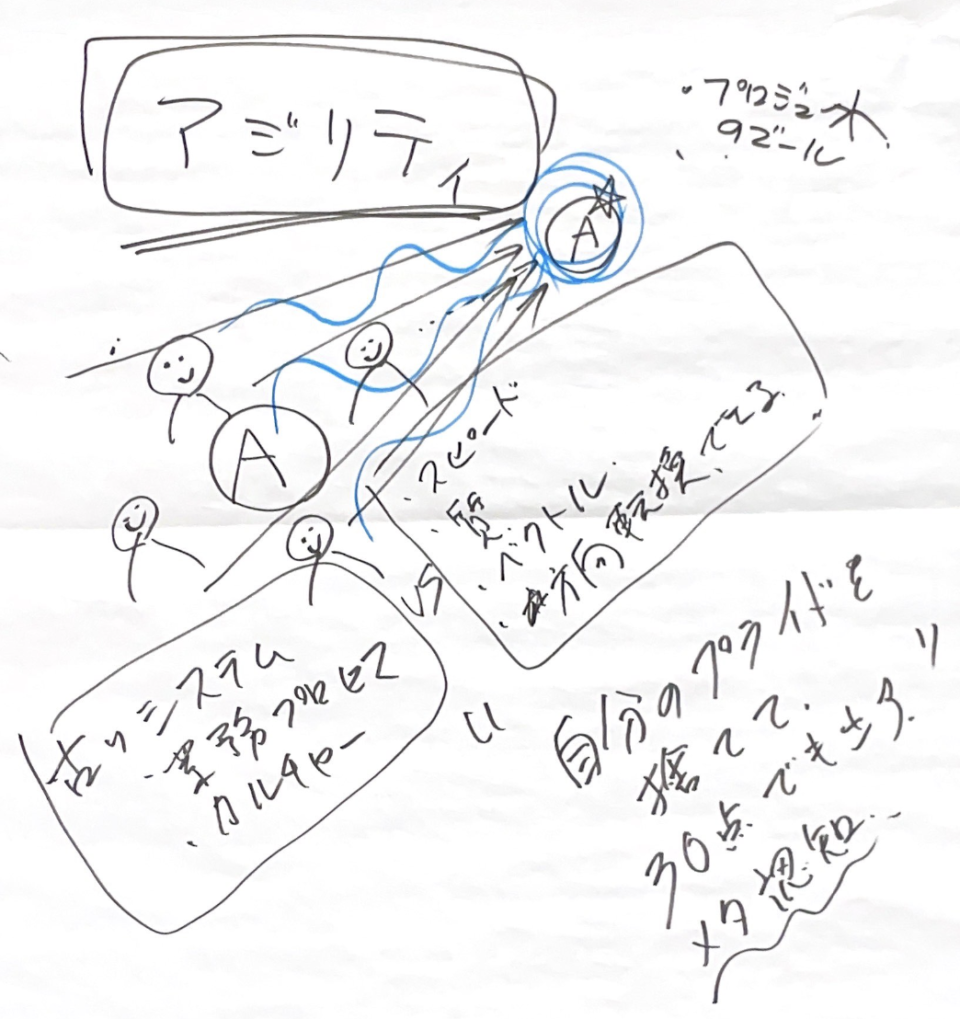 アジリティ
・プロジェ
のゴール
A
A
・スピード
・質
・ベクトル
方向転換できる
VS
古いシステム
・業務プロセス
・カルチャー
自分のプライドを
捨てて、
30点でもやる。
メタ認知